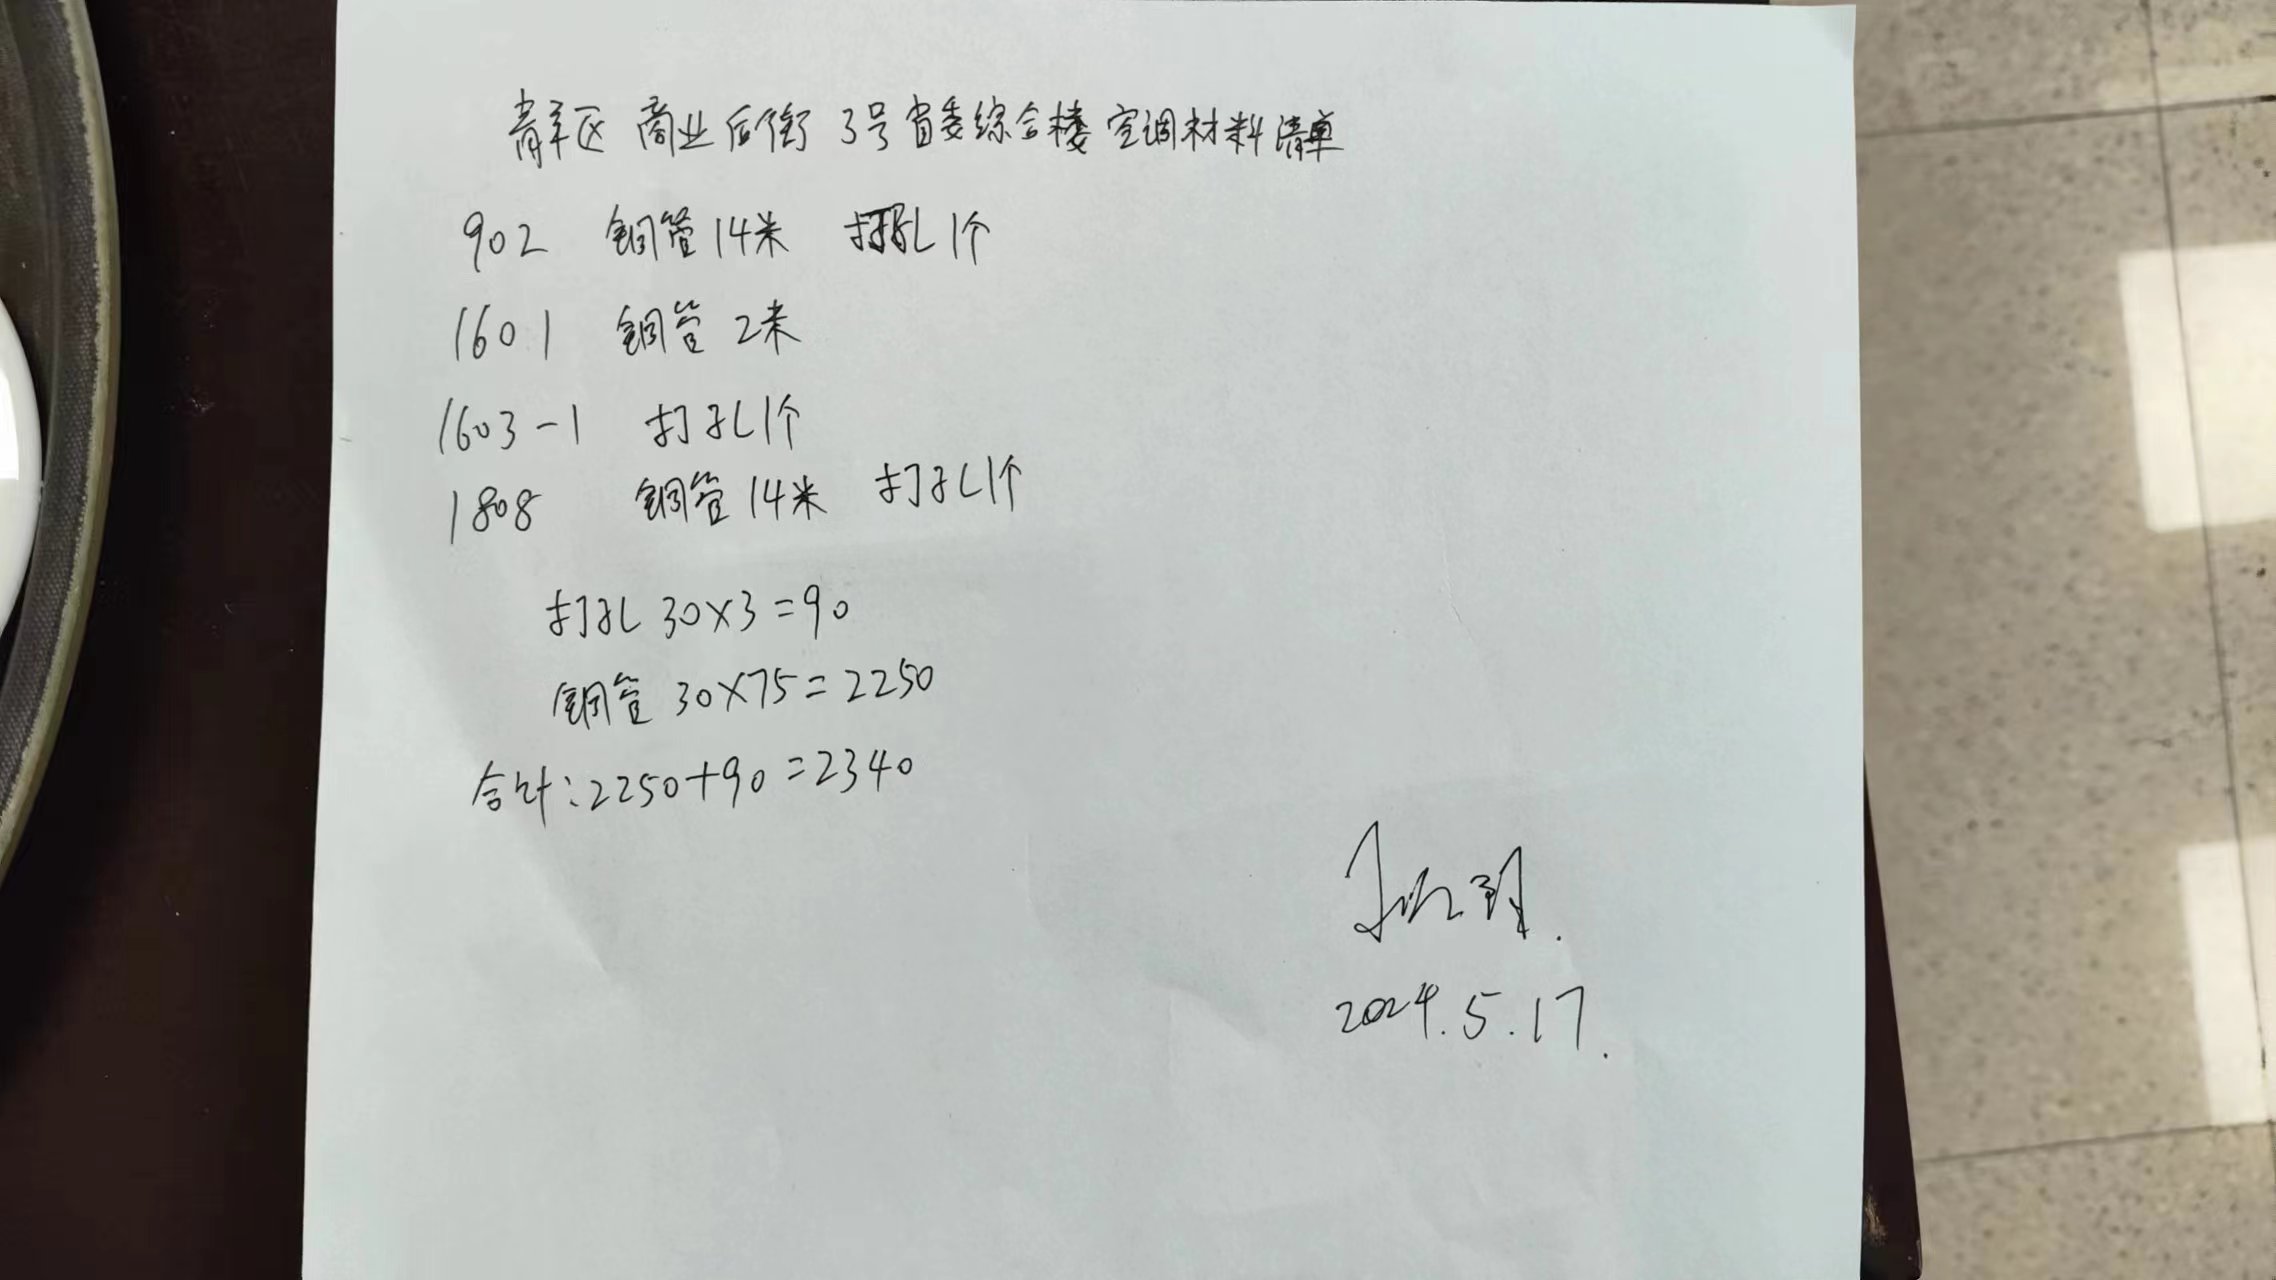 青羊区 商业后街 3号省委综合楼空调材料清单
902 铜管14米 打孔1个
1601 铜管 2米
1603-1 打孔1个
1808 铜管14米 打孔1个
打孔 30×3=90
铜管 30×75=2250
合计:2250+90=2340
2024.5.17.